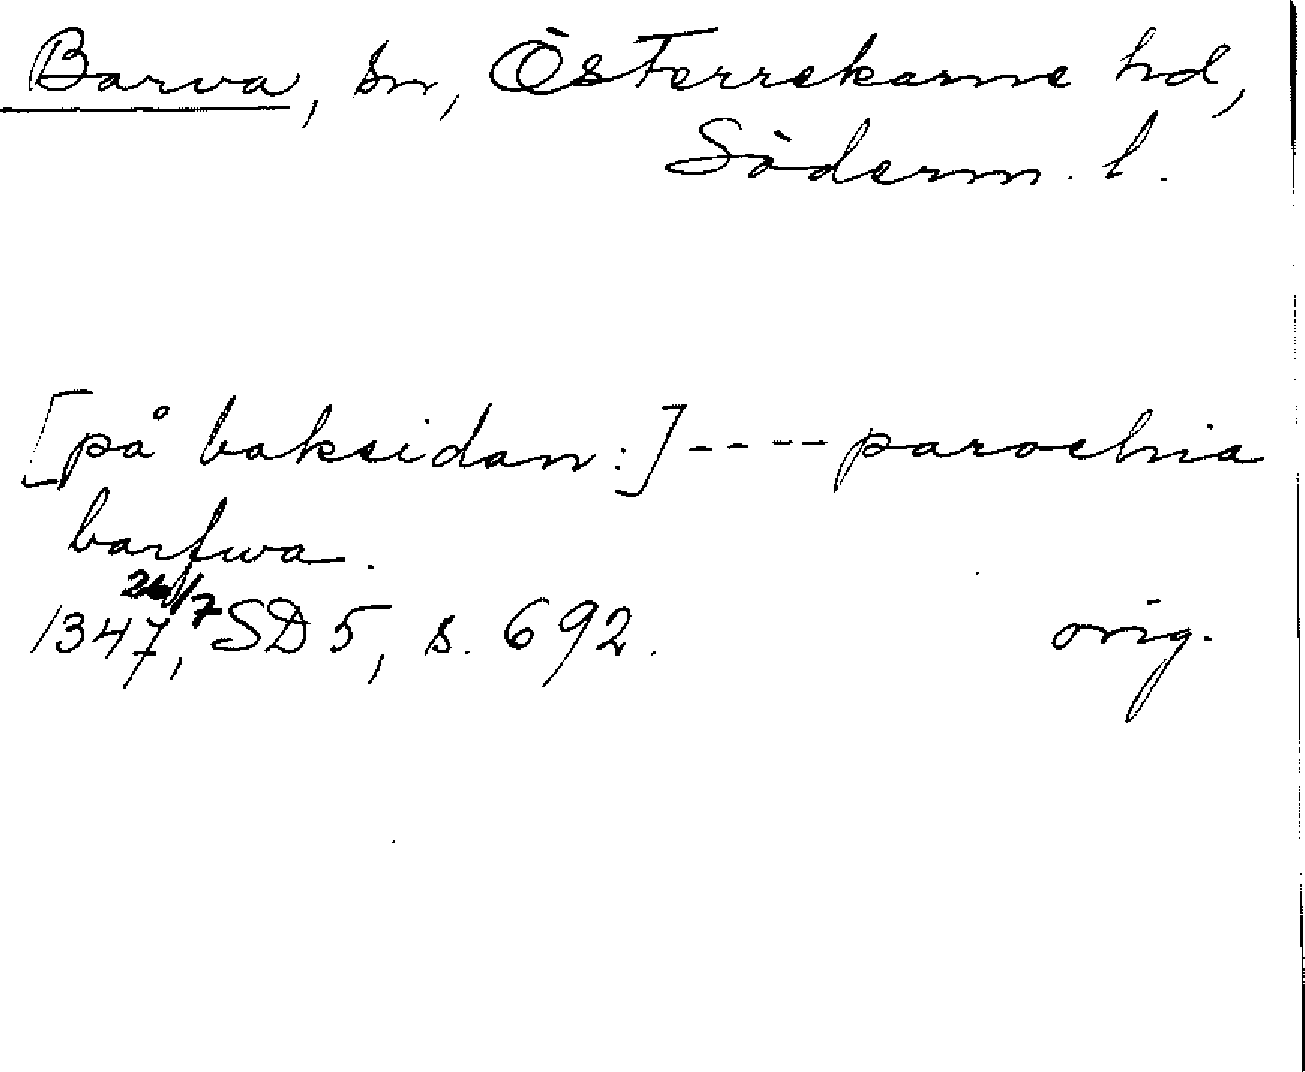 Barva, sn, Österrekarne hd,
Söderm. l.
[på baksidan:] ---- parochia
barfwa.
1347 26/7, SD 5, s. 692. orig.